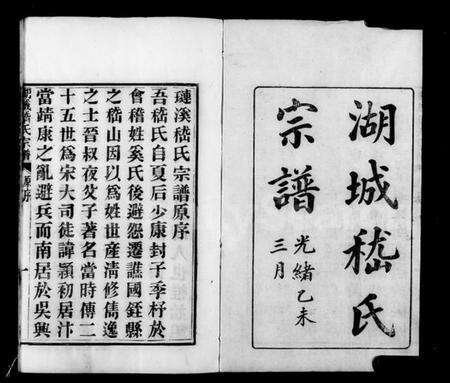 湖城嵇氏
宗譜
光緒乙未
三月
璉溪嵇氏宗譜原序
吾嵇氏自夏后少康封子季杼於
會稽姓奚氏後避怨遷譙國銍縣
之嵇山因以為姓世産清修儁逸
之士晉叔夜父子著名當時傳二
十五世為宋大司徒諱穎初居汴
當靖康之亂避兵而南居於吳興